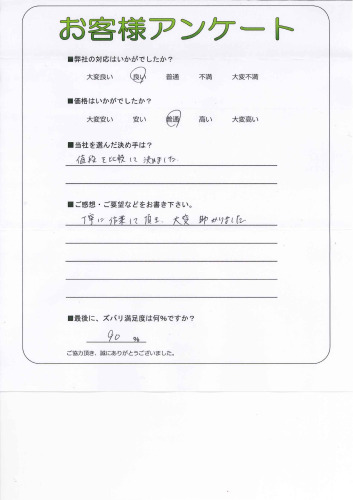 お客様アンケート
■弊社の対応はいかがでしたか？
大変良い 良い 普通 不満 大変不満
■価格はいかがでしたか？
大変安い 安い 普通 高い 大変高い
■当社を選んだ決め手は？
値段を比較して決めました
■ご感想・ご要望などをお書き下さい。
丁寧に作業して頂き、大変助かりました
■最後に、ズバリ満足度は何%ですか？
90 %
ご協力頂き、誠にありがとうございました。